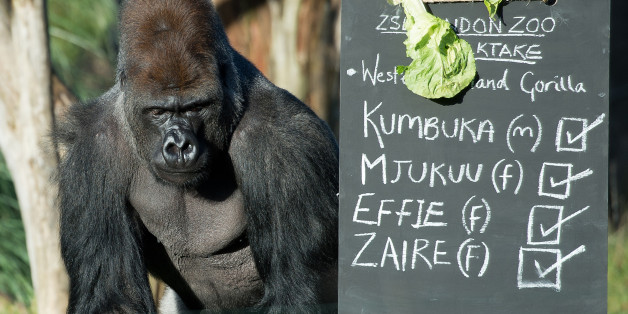 ZSL NDON ZOO
KTAKE
• West and Gorilla
KUMBUKA (m) ☑
MJUKUU (f) ☑
EFFIE (f) ☑
ZAIRE (f) ☑